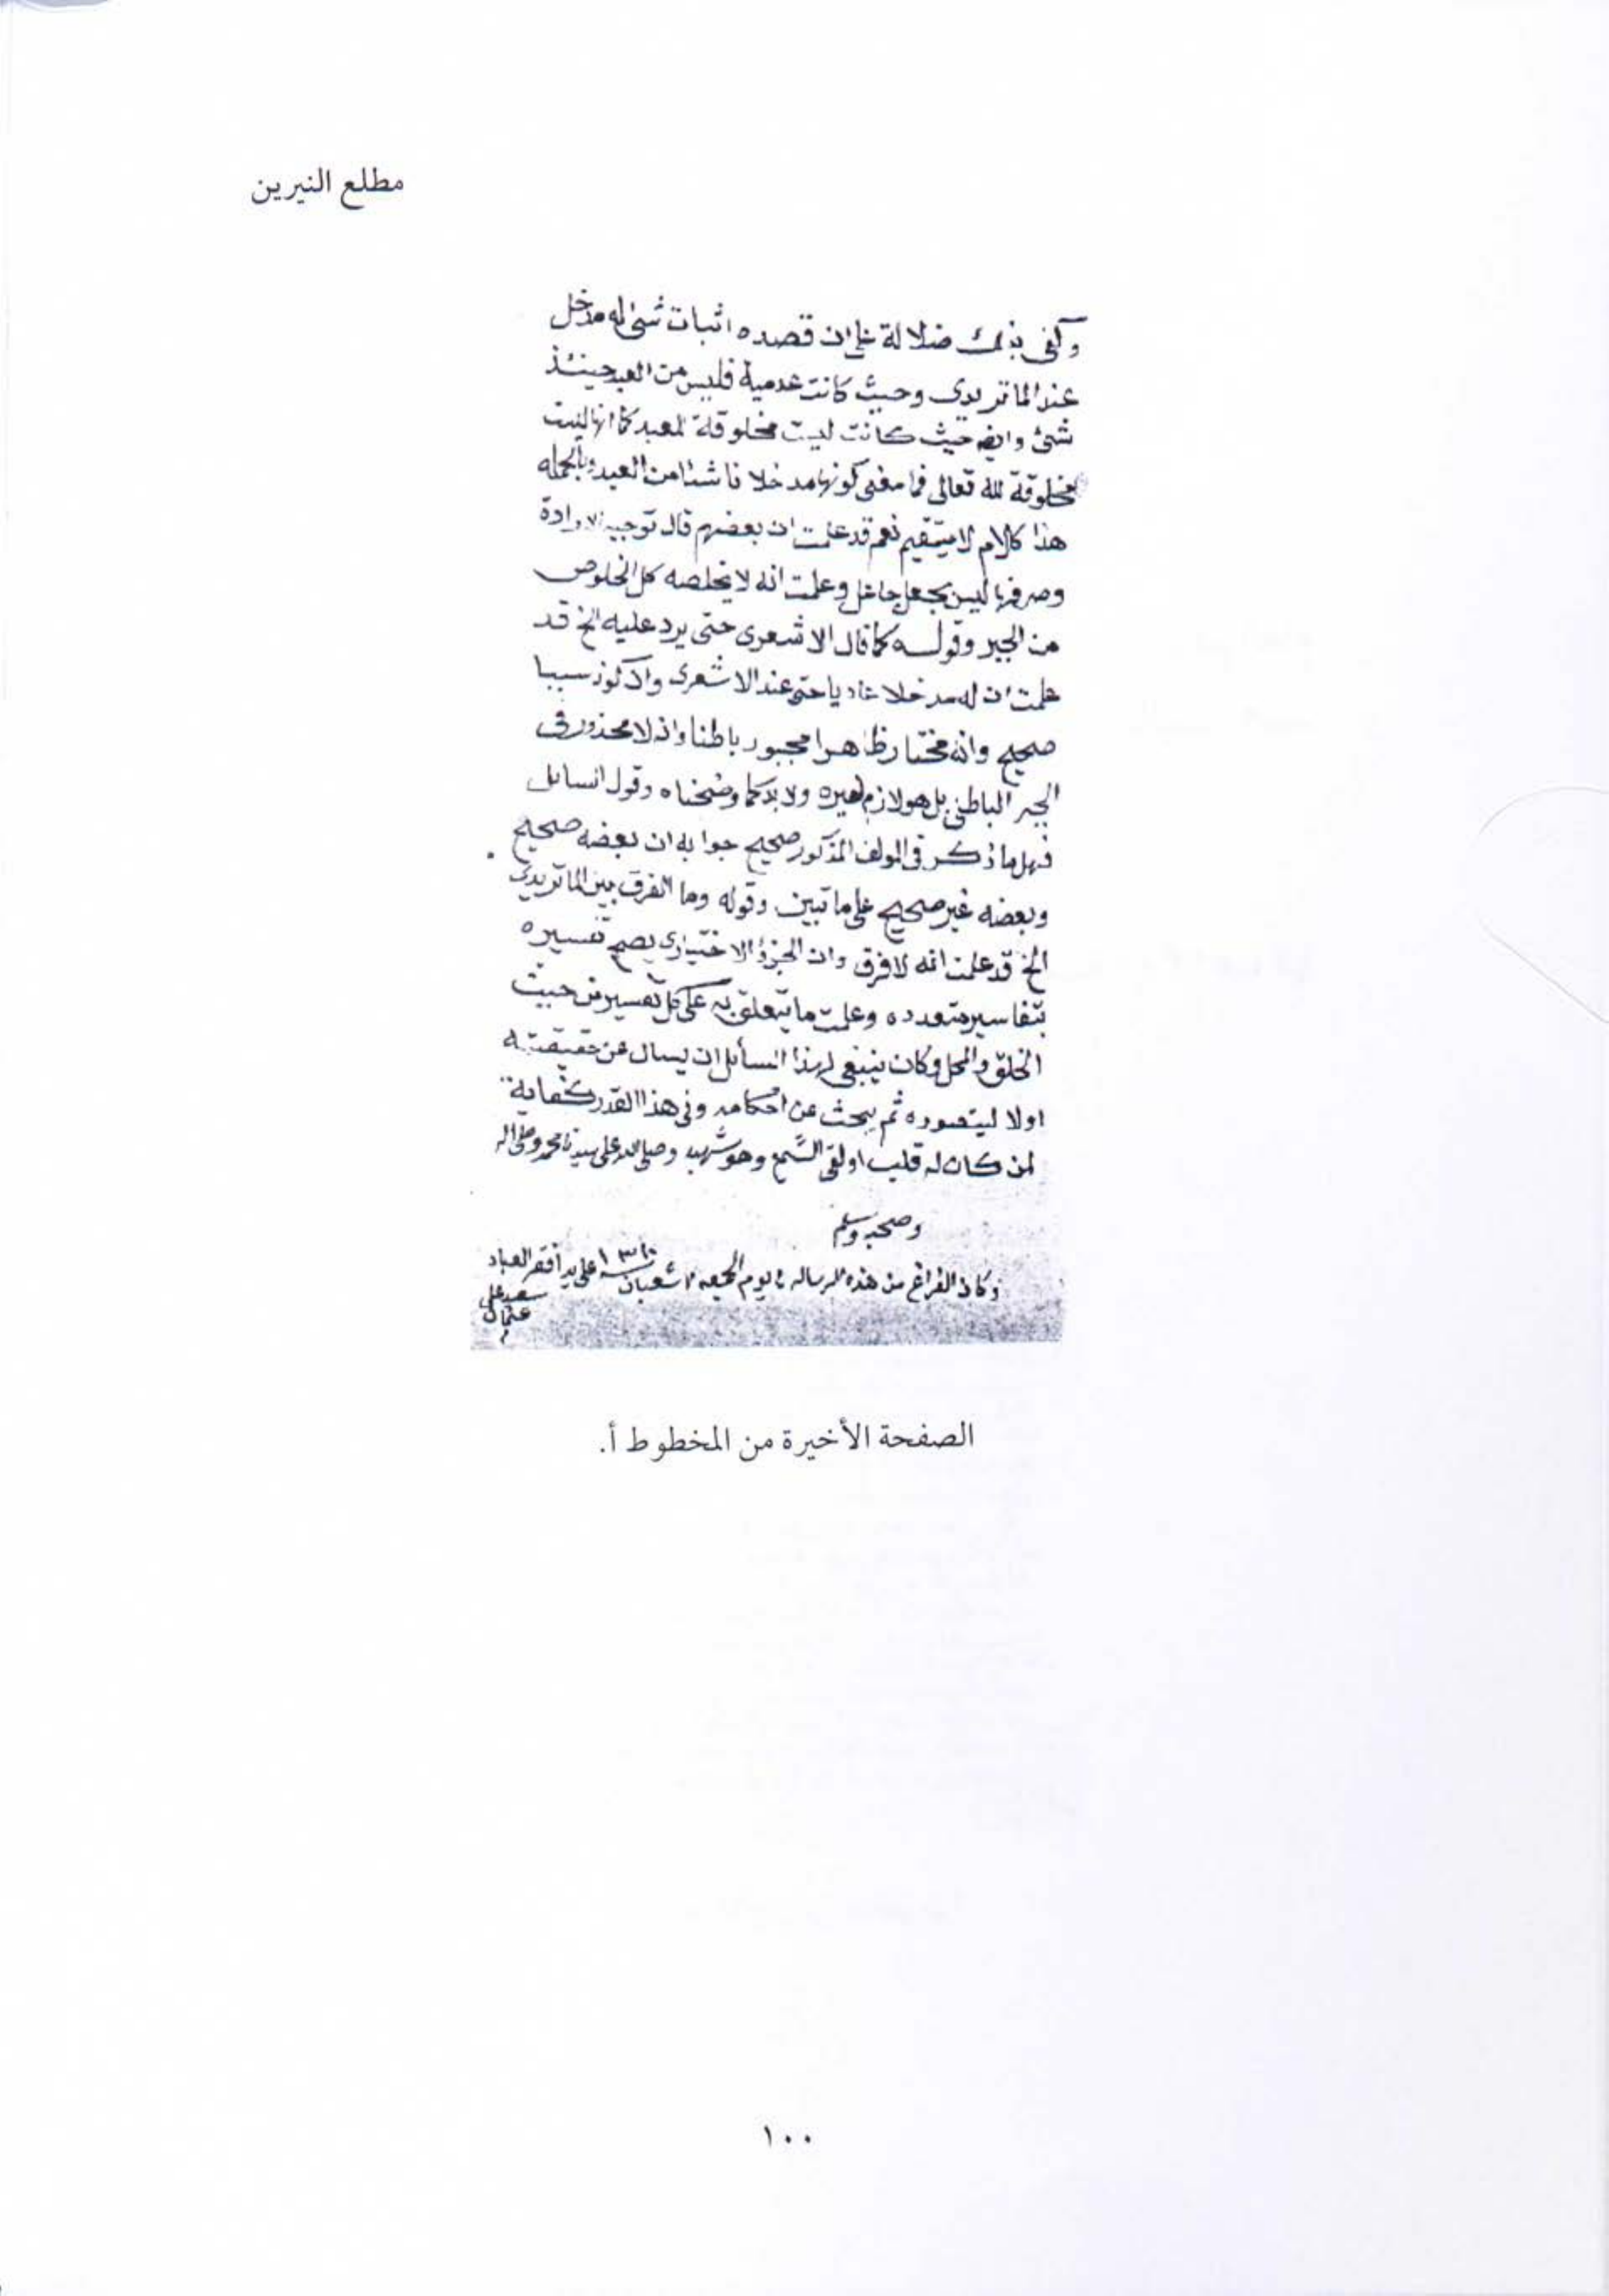 مطلع النيرين
وكفى بذلك ضلالة على ان قصده اثبات شئ له مدخل
عند الماتريدى وحيث كانت عدمية فليس من العبد حينئذ
شئ وايضه حيث كانت ليست مخلوقة للعبد كما انها ليست
مخلوقة لله تعالى فما معنى كونها مدخلا ناشئا من العبد وبالجمله
هذا كلام لا يستقيم نعم قد علمت ان بعضهم قال توجيه الارادة
وصرفها ليس بجعل جاعل وعلمت انه لا يخلصه كل الخلوص
من الجبر وقوله كما قال الاشعرى حتى يرد عليه الخ قد
علمت ان له مدخلا عاديا حتى عند الاشعرى واذ كونه سببا
صحيح وانه مختار ظاهرا مجبور باطنا وانه لا محذور فى
الجبر الباطنى بل هو لازم لغيره ولا بد كما وضحناه وقول السائل
فهل ما ذكر فى المولف المذكور صحيح جوابه ان بعضه صحيح
وبعضه غير صحيح على ما تبين وقوله وما الفرق بين الماتريدى
الخ قد علمت انه لا فرق وان الجزؤ الاختيارى يصح تفسيره
بتفاسير متعدده وعلمت ما يتعلق به على كل تفسير من حيث
الخلق والمحل وكان ينبغى لهذا السائل ان يسال عن حقيقته
اولا ليتصوره ثم يبحث عن احكامه وفى هذا القدر كفاية
لمن كان له قلب او القى السمع وهو شهيد وصلى الله على سيدنا محمد وعلى اله
وصحبه وسلم
وكان الفراغ من هذه الرساله فى يوم الجمعه شعبان سنه على يد أفقر العباد
سعيد على
عثمان
م
الصفحة الأخيرة من المخطوط أ.
١٠٠